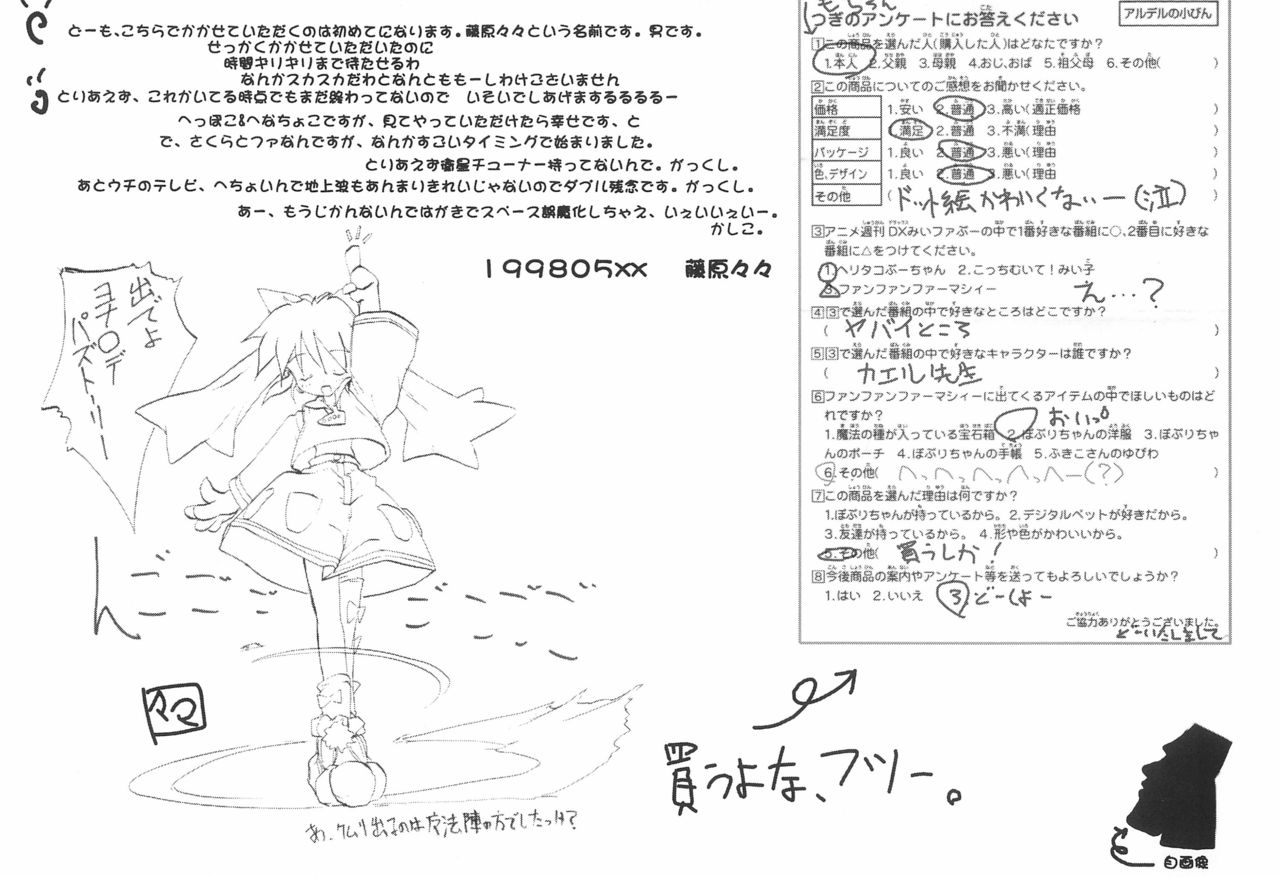 どーも、こちらでかかせていただくのは初めてになります。藤原々々という名前です。男です。
せっかくかかせていただいたのに
時間ギリギリまで待たせるわ
なんかスカスカだわとなんとももーしわけございません
とりあえず、これかいてる時点でもまだ終わってないので　いそいでしあげまするるるるー
へっぽこ&へなちょこですが、見てやっていただけたら幸せです、と
で、さくらとファなんですが、なんかすごいタイミングで始まりました。
とりあえず衛星チューナー持ってないんで。がっくし。
あとウチのテレビ、へちょいんで地上波もあんまりきれいじゃないのでダブル残念です。がっくし。
あー、もうじかんないんではがきでスペース誤魔化しちゃえ、いぇいいぇいー。
かしこ。
199805xx　藤原々々
出でよ
ヨナ〇デ
パズトリー
ん
ゴゴゴ
ママ
あ、ケムリ出るのは魔法陣の方でしたっけ?
もちろん
つぎのアンケートにお答えください
アルデルの小びん
1この商品を選んだ人(購入した人)はどなたですか?
1.本人　2.父親　3.母親　4.おじ、おば　5.祖父母　6.その他(　)
2この商品についてのご感想をお聞かせください。
価格　1.安い　2.普通　3.高い(適正価格　)
満足度　1.満足　2.普通　3.不満(理由　)
パッケージ　1.良い　2.普通　3.悪い(理由　)
色、デザイン　1.良い　2.普通　3.悪い(理由　)
その他　(ドット絵かわいくなぃー(泣)　)
3アニメ週刊DXみいファぷーの中で1番好きな番組に○、2番目に好きな
番組に△をつけてください。
1.ヘリタコぷーちゃん　2.こっちむいて!みい子
3.ファンファンファーマシィー
え…?
43で選んだ番組の中で好きなところはどこですか?
(ヤバイところ　)
53で選んだ番組の中で好きなキャラクターは誰ですか?
(カエル先生　)
6ファンファンファーマシィーに出てくるアイテムの中でほしいものはど
れですか?
おいっ
1.魔法の種が入っている宝石箱　2.ぽぷりちゃんの洋服　3.ぽぷりちゃ
んのポーチ　4.ぽぷりちゃんの手帳　5.ふきこさんのゆびわ
6.その他(へっへっへっへっへー(?)　)
7この商品を選んだ理由は何ですか?
1.ぽぷりちゃんが持っているから。2.デジタルペットが好きだから。
3.友達が持っているから。　4.形や色がかわいいから。
5.その他(買うしか!　)
8今後商品の案内やアンケート等を送ってもよろしいでしょうか?
1.はい　2.いいえ　3 どーしよー
ご協力ありがとうございました。
どーいたしまして
買うよな、フツー。
自画像